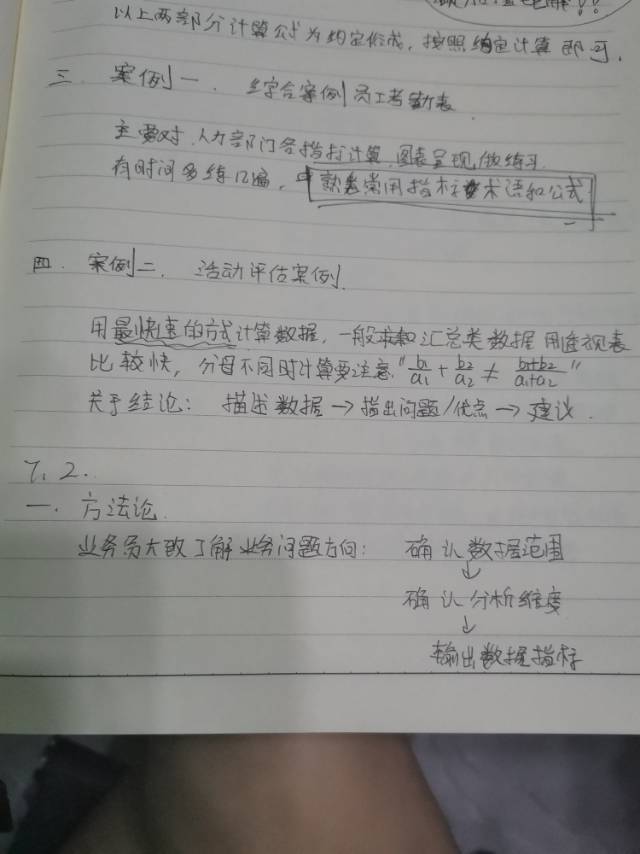 以上两部分计算公式为约定俗成，按照约定计算即可。
三. 案例一. 综合案例员工考勤表
主要对人力部门各指标计算、图表呈现做练习.
有时间多练几遍，熟悉常用指标术语和公式
四. 案例二. 活动评估案例.
用最快速的方式计算数据，一般求和汇总类数据用透视表
比较快，分母不同时计算要注意"b₁/a₁ + b₂/a₂ ≠ b₁+b₂/a₁+a₂"
关于结论：描述数据→指出问题/优点→建议.
7.2.
一. 方法论.
业务员大致了解业务问题方向：确认数据范围
↓
确认分析维度
↓
输出数据指标